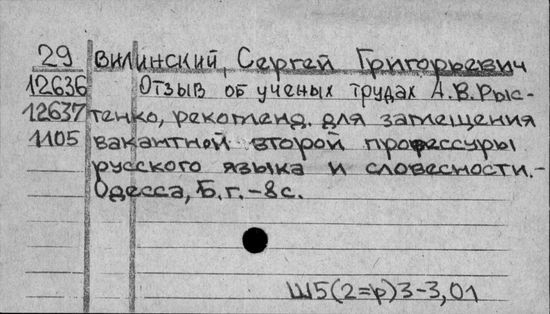 29 Вилинский, Сергей Григорьевич
12636 Отзыв об ученых трудах А.В.Рыс-
12637 тенко, рекоменд. для замещения
1105 вакантной второй профессуры
русского языка и словесности.-
Одесса, Б.г.-8с.
Ш5(2=р)3-3,01